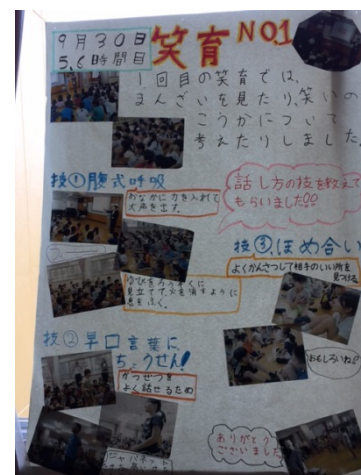 9月30日
5,6時間目
笑育 NO1
1回目の笑育では、
まんざいを見たり、笑いの
こうかについて
考えたりしました。
技①腹式呼吸
おなかに力を入れて
大声を出す。
ゆびをろうそくに
見立てて、火を消すように
息をふく。
話し方の技を教えて
もらいました!!
技③ほめ合い
よくかんさつして相手のいい所を
見つける
技②早口言葉に
ちょうせん!
かつぜつを
よく話せるため
おもしろいね!!
ありがとう
ございました